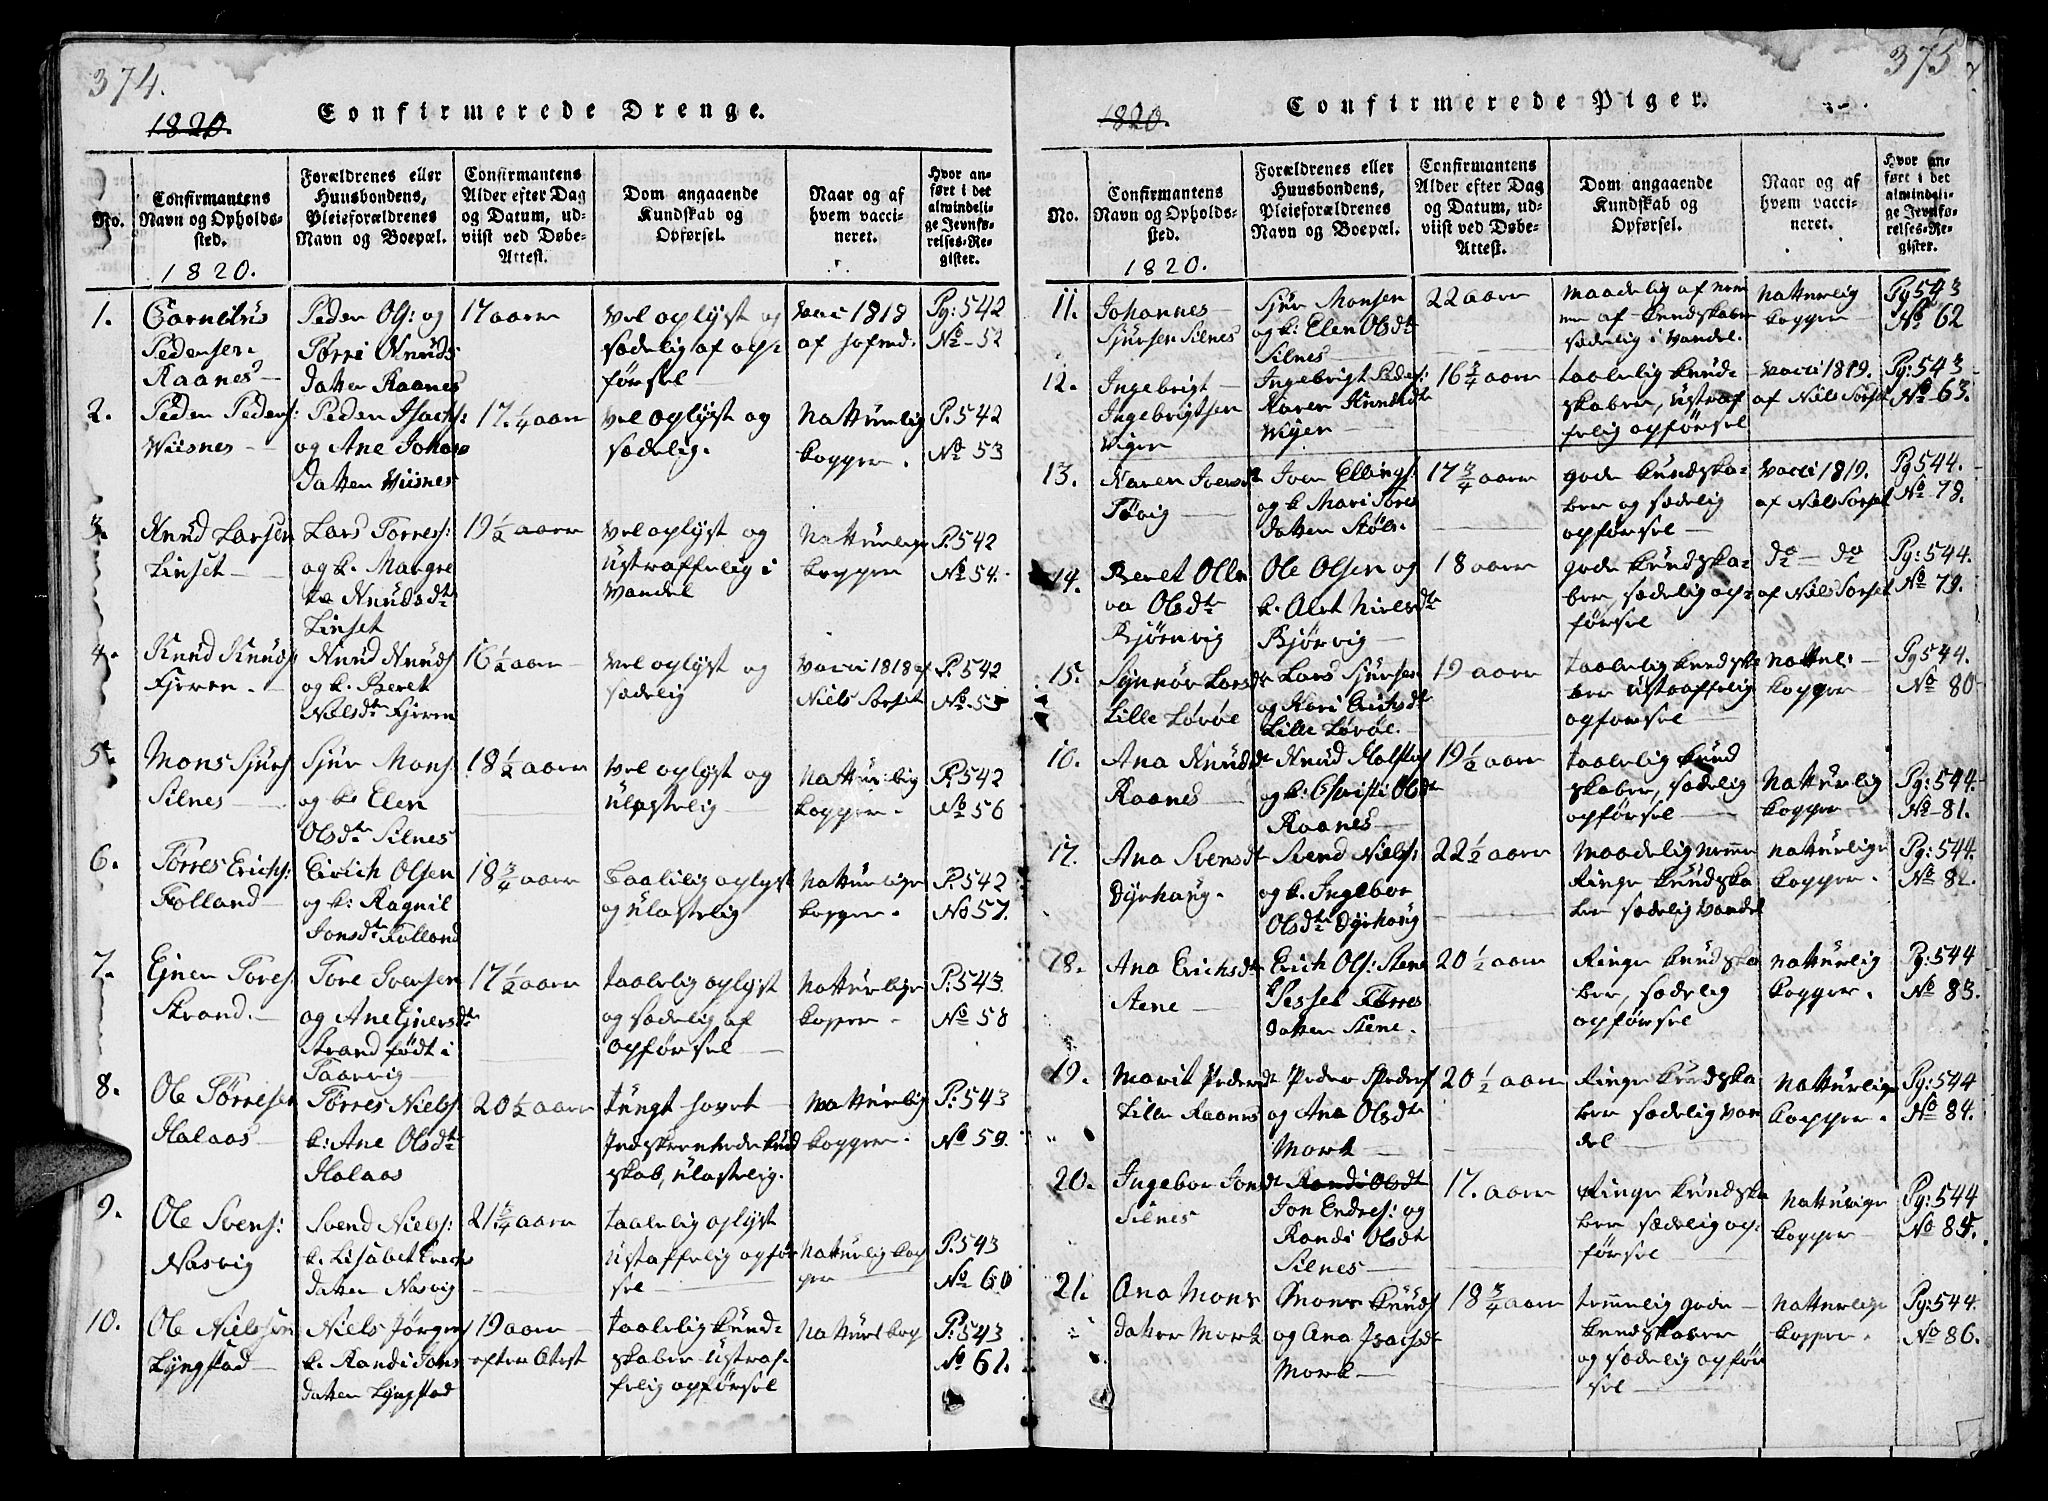 374.
1820.
Confirmerede Drenge.
No.
Confirmantens Navn og Opholds-sted.
1820.
Forældrenes eller Huusbondens, Pleieforældrenes Navn og Boepæl.
Confirmantens Alder efter Dag og Datum, ud-viist ved Døbe-Attest.
Dom angaaende Kundskab og Opførsel.
Naar og af hvem vacci-neret.
Hvor an-ført i det almindeli-ge Jevnfø-relses-Re-gister.
1.
Pedersen
Raanes
Peder Ols: og
Tørri Knuds
datter Raanes
17 aar
vel oplyst og
sædelig af op:
førsel
vacci 1818
Pg: 542
No 52
2.
Peder Peders:
Wiisnes
Peder Isachs:
og Ane Johans
datter Wiisnes
17 1/4 aar
vel oplyst og
sædelig.
Natturlig
kopper.
P. 542
No 53
3.
Knud Larsen
Linset
Lars Torres:
og k. Margre
te Knudsdtr
Linset
19 1/2 aar
vel oplyst og
ustraffelig i
vandel
Natturlige
kopper
P. 542
No 54.
4.
Knud Knuds
Fjeren.
Knud Knuds
og k. Beret
Nielsdtr Fjeren
16 1/2 aar
vel oplyst og
sædelig
vacci 1818 af
Niels Sorset
P. 542
No 55
5.
Mons Sjurs
Silnes
Sjur Mons:
og k: Elen
Olsdtr Silnes
18 1/2 aar
vel oplyst og
ulastelig
Natturlig
kopper.
P. 542
No 56
6.
Torres Erichs:
Folland
Erich Olsen
og k: Ragnil
Jonsdtr Folland
18 3/4 aar
Taalelig oplyst
og ulastelig
Natturlige
kopper.
P. 542
No 57.
7.
Ejner Tores:
Strand.
Tore Svensen
og Ane Ejnersdtr
Strand født i
Taarvig
17 1/2 aar
taalelig oplyst
og sædelig af
opførsel
Natturlige
kopper.
P. 543
No 58
8.
Ole Tørresen
Halaas
Tørres Niels:
k: Ane Olsdtr
Halaas
20 1/2 aar
tungt hovet
Indskrenkede kund
skab, ulastelig.
Natturlig
kopper.
P. 543
No 59.
9.
Ole Svens:
Nasvig
Svend Niels:
k. Lisabet Erichs
datter Nasvig
21 3/4 aar
taalelig oplyst
ustraffelig opfør
sel
Natturlig kop
per
P. 543
No 60
10.
Ole Nielssen
Lyngstad
Niels Jørgens
k. Randi Jons
datter Lyngstad
19 aar
efter Atest
taalelig kund:
skaber ustraf:
felig opførsel
Natturl kop
P. 543
No 61.
375
1820.
Confirmerede Piger.
No.
Confirmantens Navn og Opholds-sted.
1820.
Forældrenes eller Huusbondens, Pleieforældrenes Navn og Boepæl.
Confirmantens Alder efter Dag og Datum, ud-viist ved Døbe-Attest.
Dom angaaende Kundskab og Opførsel.
Naar og af hvem vacci-neret.
Hvor an-ført i det almindeli-ge Jevnfø-relses-Re-gister.
11.
Johannes
Sjursen Silnes
Sjur Monsen
og k: Elen Olsdtr
Silnes
22 aar
Maadelig af nem
me af kundskaber
sædelig i vandel.
Natturlig
kopper
Pg 543
No 62
12.
Ingebrigt
Ingebrigtsen
Wigen
Ingebrigt Peders:
Karen Knudsdtr
16 3/4 aar
taalelig kund:
skaber, ustraf
felig opførsel
vacci 1819.
af Niels Sorset
Pg: 543
No 63.
13.
Karen Iversdtr
Iver Ellings:
og k Mari Tores
datter Støle.
17 3/4 aar
gode kundska:
ber og sædelig
opførsel
vacci 1819.
af Niels Sorset
Pg 544.
No 78.
14.
Beret Olle
va Olsdtr
Bjørnvig
Ole Olsen og
k. Alet Nielsdtr
Bjørvig
18 aar
gode kundska:
ber, sædelig op:
førsel
do do
af Niels Sorset
Pg: 544.
No 79.
15.
Synnøv Larsdtr
Lille Lørøe
Lars Sjursen
og Kari Erichsdtr
Lille Lørøe.
19 aar
taalelig kundska
ber ustraffelig
opførsel
Nattul:
kopper
Pg 544.
No 80
16.
Ana Knudsdtr
Raanes
Knud Halsteins
og k: Christi Olsdtr
Raanes
19 1/2 aar
taalelig kund
skaber, sædelig
opførsel
Natturlig
kopper
Pg: 544.
No 81.
17.
Ana Svensdtr
Dyrhaug.
Svend Niels:
og k: Ingebor
Olsdtr Dyrhaug
22 1/2 aar
Maadelig nemme
Ringe kundska
ber sædelig vandel
Natturlige
kopper.
Pg: 544.
No 82.
18.
Ana Erichsdtr
Stene
Erich Ols: Stene
k Sessel Tørres
datter Stene.
20 1/2 aar
Ringe kundska
ber, sædelig
opførsel
Natturlig
kopper.
Pg: 544
No 83.
19.
Marit Pedersdtr
Lille Raanes
Peder Peders
og Ana Olsdtr
Mork
20 1/2 aar
Ringe kundska
ber sædelig van
del
Natturlige
kopper.
Pg: 544
No 84.
20.
Ingebor Jonsdtr
Silnes
Randi Olsdtr
Jon Endres: og
Randi Olsdtr
Silnes
17. aar
Ringe kundska
ber sædelig op:
førsel
Natturlige
kopper
Pg: 544
No 85.
21.
Ana Mons
datter Mork
Mons Knuds
og Ana Isachsdtr
Mork
18 3/4 aar
temmelig gode
kundskaber
og sædelig opfør
sel
Natturlige
kopper.
Pg: 544.
No 86.